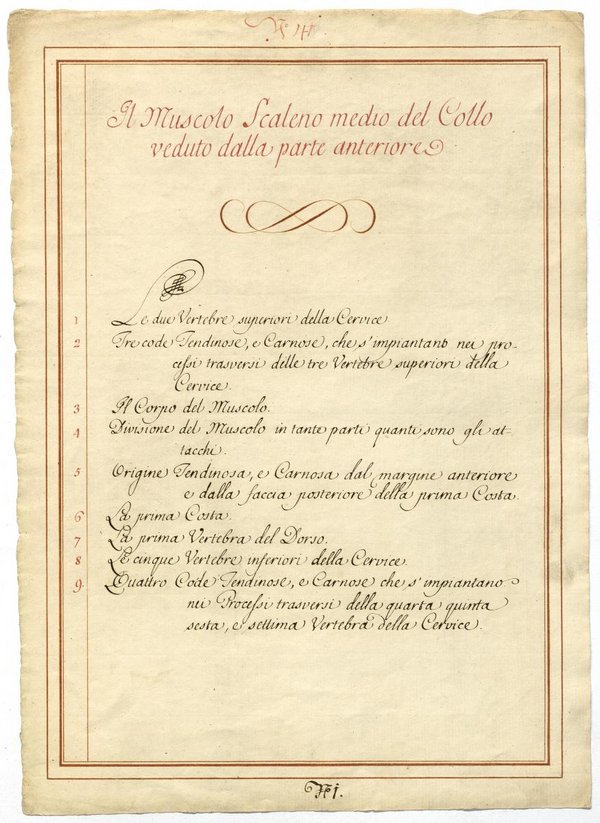 N.º 41
Il Muscolo Scaleno medio del Collo
veduto dalla parte anteriore
1 Le due Vertebre superiori della Cervice
2 Tre code Tendinose, e Carnose, che s'impiantano nei pro-
cessi trasversi delle tre Vertebre superiori della
Cervice.
3 Il Corpo del Muscolo.
4 Divisione del Muscolo in tante parti quanti sono gli at-
tacchi.
5 Origine Tendinosa, e Carnosa dal margine anteriore
e dalla faccia posteriore della prima Costa.
6 La prima Costa.
7 La prima Vertebra del Dorso.
8 Le cinque Vertebre inferiori della Cervice.
9. Quattro Code Tendinose, e Carnose che s'impiantano
nei Processi trasversi della quarta quinta
sesta, e settima Vertebra della Cervice.
Nº 1.